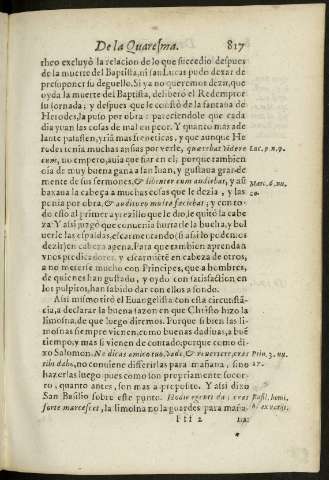 De la Quaresma. 817
theo excluyò la relacion de lo que sucedio despues
de la muerte del Baptista, ni san Lucas pudo dexar de
presuponer su deguello. Si ya no queremos dezir, que
oyda la muerte del Baptista, deliberó el Redemptor
su jornada; y despues que le constò de la
Herodes, la puso por obra: pareciendole que cada
dia yuan las cosas de mal en peor. Y quanto mas ade
lante passassen, y mas freneticos, y que aunque He
rodes tenia muchas ansias por verle, quærebat videre
eum, no empero, auia que fiar en el; porque tambien
oia de muy buena gana a san Iuan, y gustaua grande
mente de sus sermones, & libenter eum audiebat, y assi
baxaua la cabeça a muchas cosas que le dezia, y las
ponia por obra, & audito eo multa faciebat; y con to-
do esso al primer ayrezillo que le dio, le quitò la cabe
ça. Y assi juzgò que conuenia hurtarle la bucha, y bol
uerle las espaldas, escarmentando (si assi lo podemos
dezir) en cabeça agena. Para que tambien aprendan
vnos predicadores, y escarmiẽte en cabeça de otros,
a no meterse mucho con Principes, que a hombres,
de quienes han gustado, y oydo con satisfaction en
los pulpitos, han sabido dar con ellos a fondo.
Assi mismo tirò el Euangelista con esta circunstã-
cia, a declarar la buena sazon en que Christo hizo la
limosna, de que luego diremos. Porque si bien las li-
mosnas siempre vienen como buenas dadiuas, a buẽ
tiempo, y mas si vienen de contado, porque como di-
xo Salomon. Ne dicas amico tuo, vade, & reuertere, cras
tibi dabo, no conuiene differirlas para mañana, sino
hazerlas luego: pues como son propriamente socor-
ro, quanto antes, son mas a proposito. Y assi dixo
San Basilio sobre este punto. Hodie egenti da: cras
forte marcescet, la limosna no la guardes para maña-
Fff 2 na:
Luc. 9. n. 9.
Marc. 6. nu.
20.
Prou. 3. nu.
27.
Basil. homi.